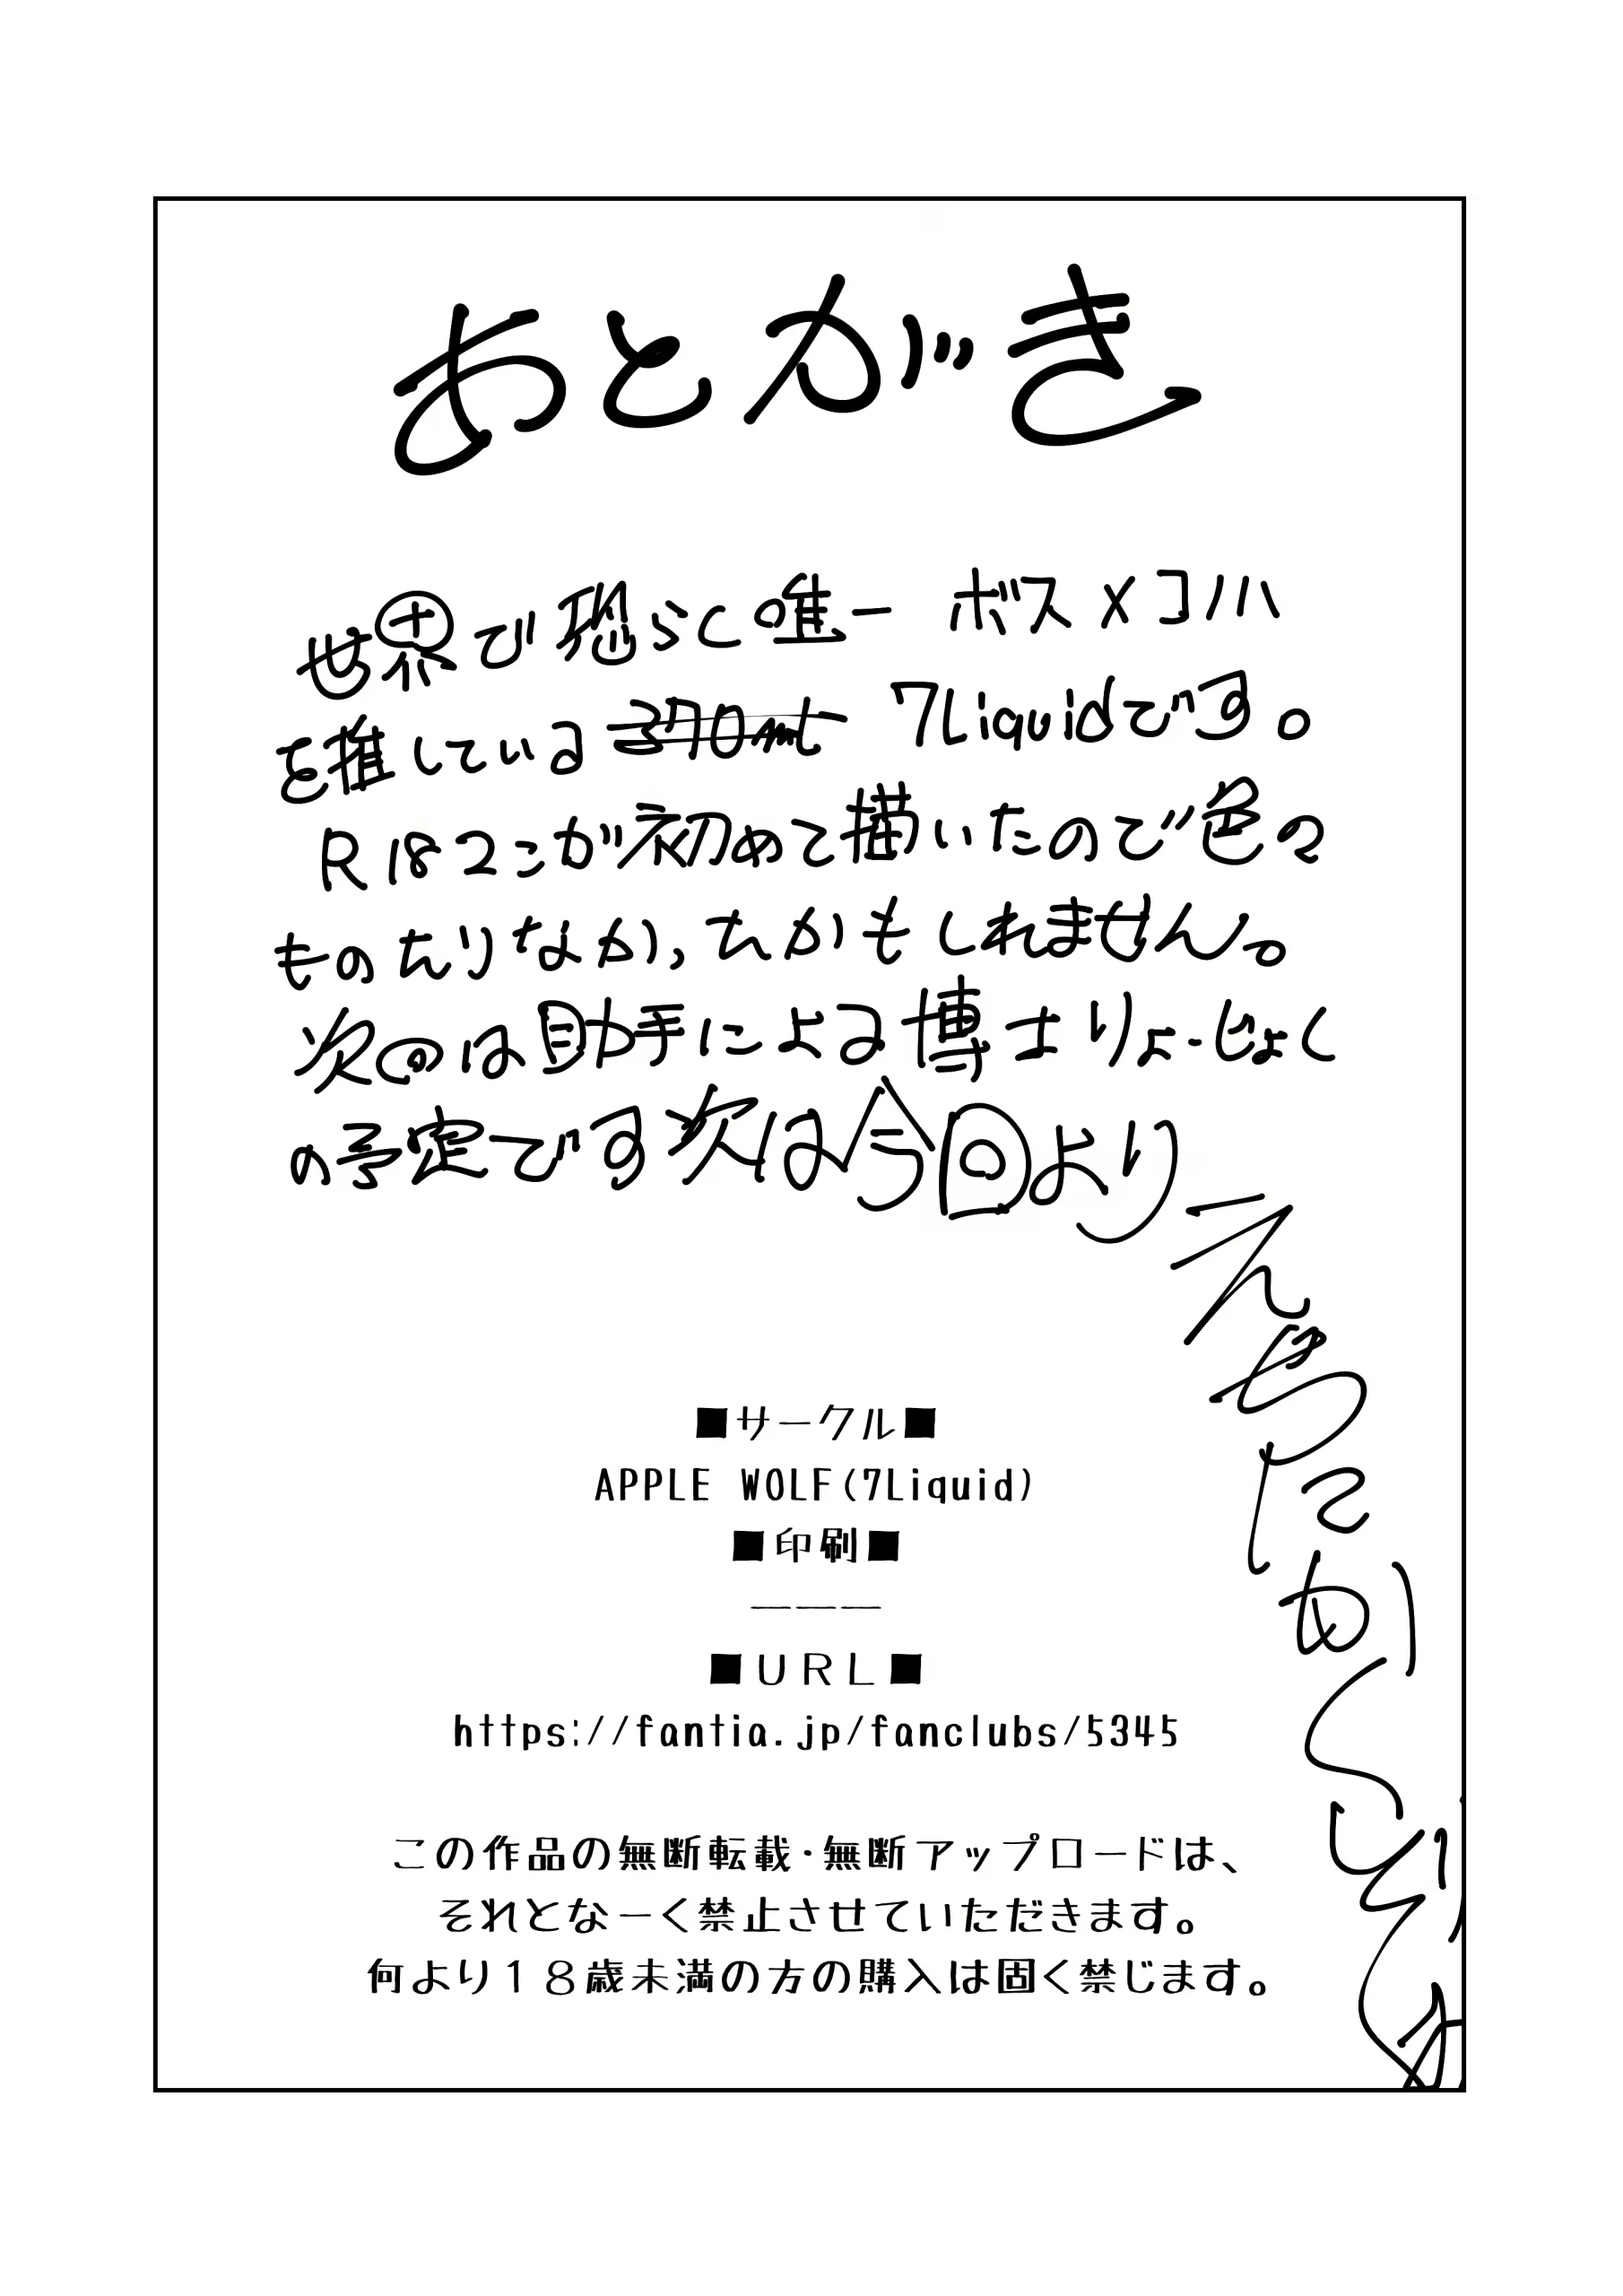 あとがき
世界で恐らく唯一 ボス×コノハ
を推している 370ml 7Liquidです。
R18マンガ初めて描いたので色々
ものたりなかったかもしれません。
次回は助手による博士りょーじょく
の予定です次は今回より
えちにかく
■サークル■
APPLE WOLF(7Liquid)
■印刷■
―――
■URL■
https://fantia.jp/fanclubs/5345
この作品の無断転載・無断アップロードは、
それとなーく禁止させていただきます。
何より18歳未満の方の購入は固く禁じます。